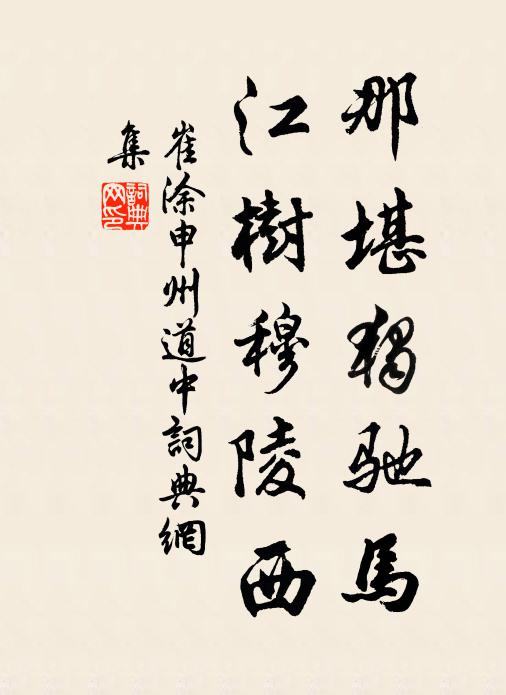 那堪獨馳馬
江樹穆陵西
崔涂申州道中詞典網
集
詞典网印